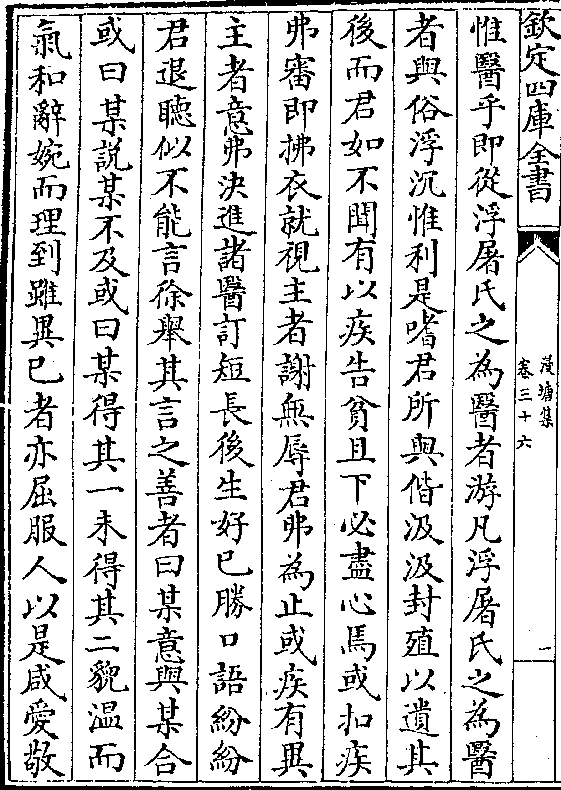 欽定四庫全書
漫塘集
卷三十六
一
惟醫乎即從浮屠氏之為醫者游凡浮屠氏之為醫
者與俗浮沉惟利是嗜君所與偕汲汲封殖以遺其
後而君如不聞有以疾告貧且下必盡心焉或扣疾
弗審即拂衣就視主者謝無辱君弗為止或疾有異
主者意弗決進諸醫訂短長後生好已勝口語紛紛
君退聽似不能言徐舉其言之善者曰某意與某合
或曰某説某不及或曰某得其一未得其二貌温而
氣和辭婉而理到雖異已者亦屈服人以是咸愛敬